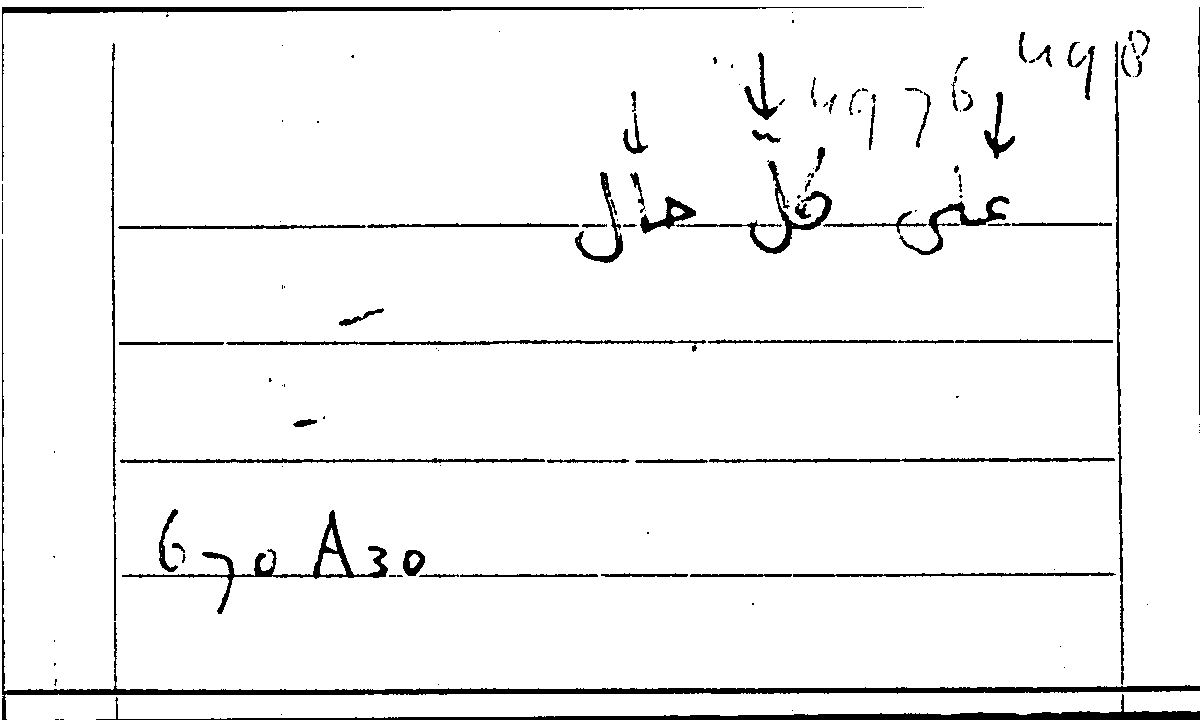 498
4976
على كل حال
670 A30